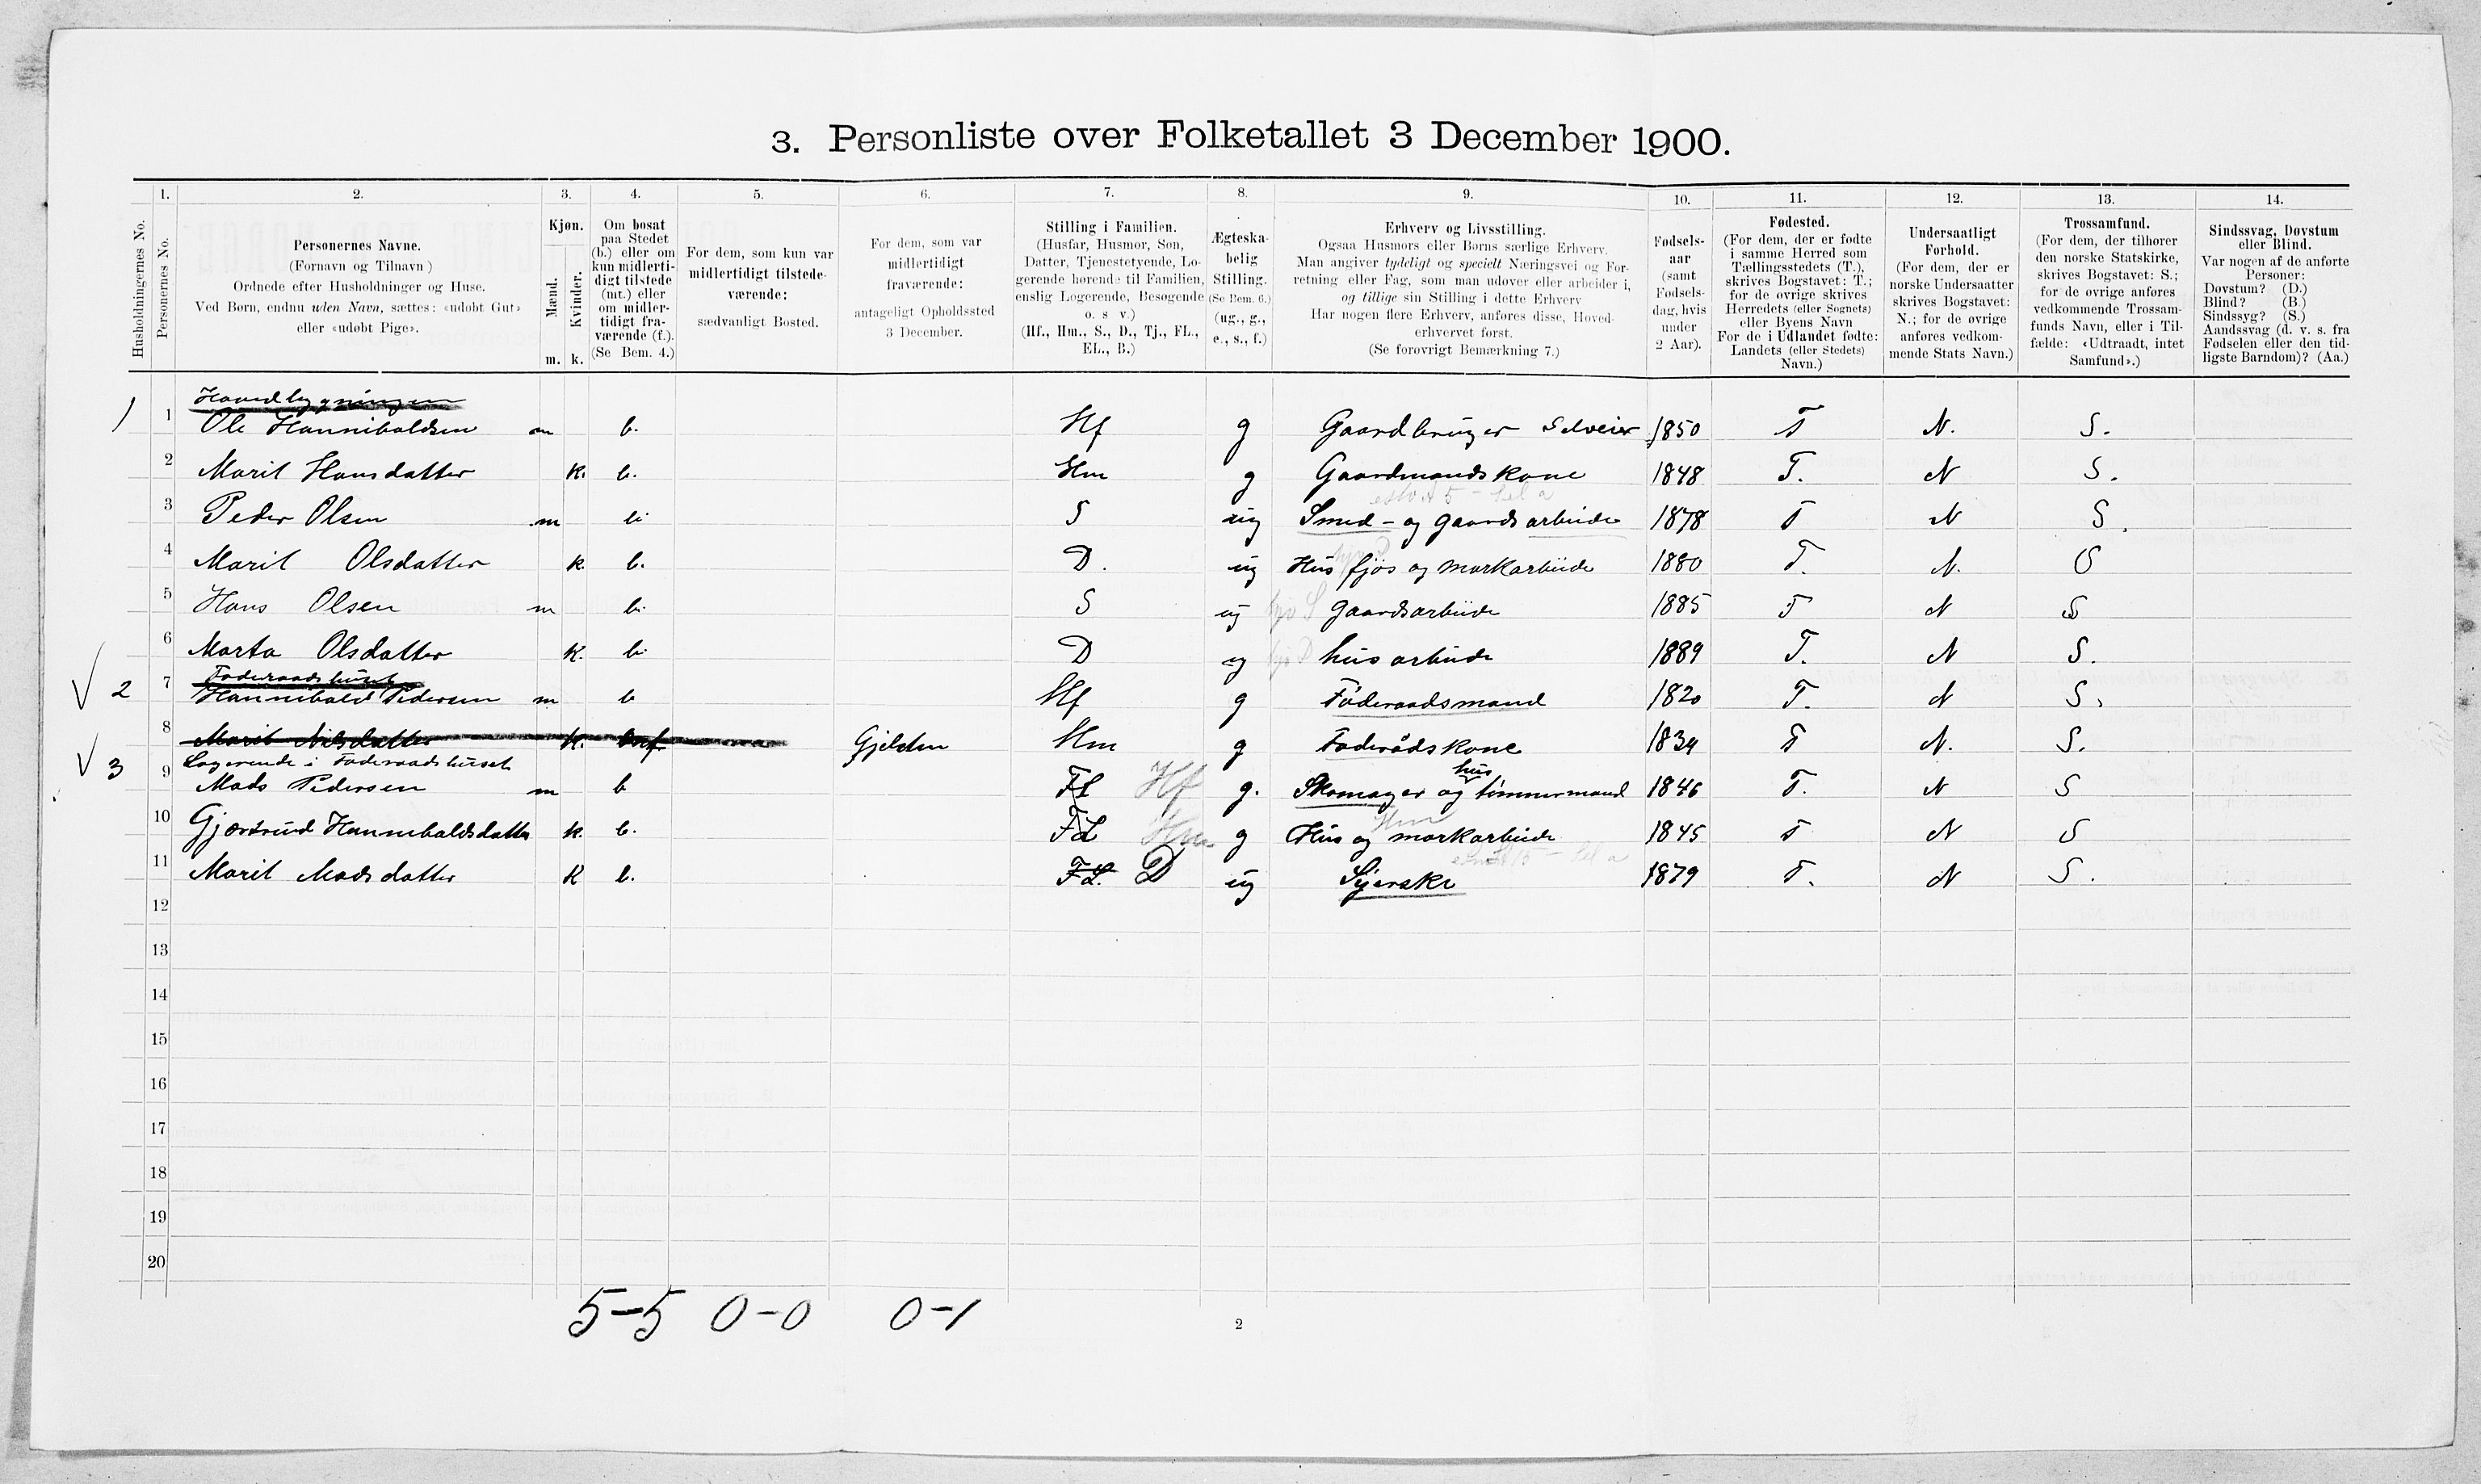 3. Personliste over Folketallet 3 December 1900.
1. 2. 3. 4. 5. 6. 7. 8. 9. 10. 11. 12. 13. 14.
Husholdningernes No.
Personernes No.
Personernes Navne.
(Fornavn og Tilnavn)
Ordnede efter Husholdninger og Huse.
Ved Børn, endnu uden Navn, sættes: «udøbt Gut»
eller «udøbt Pige».
Kjøn.
Mænd.
Kvinder.
m. k.
Om bosat
paa Stedet
(b.) eller om
kun midlerti-
digt tilstede
(mt.) eller
om midler-
tidigt fra-
værende (f.).
(Se Bem. 4.)
For dem, som kun var
midlertidigt tilstede-
værende:
sædvanligt Bosted.
For dem, som var
midlertidigt
fraværende:
antageligt Opholdssted
3 December.
Stilling i Familien.
(Husfar, Husmor, Søn,
Datter, Tjenestetyende, Lo-
gerende hørende til Familien,
enslig Logerende, Besøgende
o. s v.)
(Hf., Hm., S., D., Tj., FL.,
EL., B.)
Ægteska-
belig
Stilling.
(Se Bem. 6.)
(ug., g.,
e., s., f.)
Erhverv og Livsstilling.
Ogsaa Husmors eller Børns særlige Erhverv.
Man angiver tydeligt og specielt Næringsvei og For-
retning eller Fag, som man udøver eller arbeider i,
og tillige sin Stilling i dette Erhverv
Har nogen flere Erhverv, anføres disse, Hoved-
erhvervet først.
(Se forøvrigt Bemærkning 7.)
Fødsels-
aar
(samt
Fødsels-
dag, hvis
under
2 Aar).
Fødested.
(For dem, der er fødte
i samme Herred som
Tællingsstedets (T.),
skrives Bogstavet: T.;
for de øvrige skrives
Herredets (eller Sognets)
eller Byens Navn
For de i Udlandet fødte:
Landets (eller Stedets)
Navn.)
Undersaatligt
Forhold.
(For dem, der er
norske Undersaatter
skrives Bogstavet:
N.; for de øvrige
anføres vedkom-
mende Stats Navn.)
Trossamfund.
(For dem, der tilhører
den norske Statskirke,
skrives Bogstavet: S.;
for de øvrige anføres
vedkommende Trossam-
funds Navn, eller i Til-
fælde: «Udtraadt, intet
Samfund».)
Sindssvag, Døvstum
eller Blind.
Var nogen af de anførte
Personer:
Døvstum? (D.)
Blind? (B.)
Sindssyg? (S.)
Aandssvag (d. v. s. fra
Fødselen eller den tid-
ligste Barndom)? (Aa.)
Hovedbygningen
1 1 Ole Hannibaldsen m b. Hf g Gaardbruger Selveier 1850 T N. S.
2 Marit Hansdatter k. b. Hm g Gaardmandskone 1848 T. N S.
3 Peder Olsen m b S ug Smed- og gaardsarbeide 1878 T N S.
4 Marit Olsdatter k. b. D. ug Hus fjøs og markarbeide 1880 T. N. S
5 Hans Olsen m b. S ug gaardsarbeide 1885 T N S
6 Marta Olsdatter k. b. D ug husarbeide 1889 T. N S.
Føderaadshuset
2 7 Hannibald Pedersen m b Hf g Føderaadsmand 1820 T. N S.
8 Marit Nilsdatter k. Gjelsten Hm g Føderådskone 1834 T N. S.
Logerende i Føderaadshuset
3 9 Mads Pedersen m b FL Hf g. Skomager og hus tømmermand 1846 T. N S
10 Gjærtrud Hannibaldsdatter k. b. FL Hm g Hus og markarbeide 1845 T N S
11 Marit Madsdatter K b. FL. D ug Syerske 1879 T. N S.
12
13
14
15
16
17
18
19
20
5-5 0-0 0-1
2